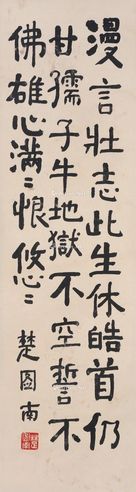 漫言壮志此生休皓首仍
甘孺子牛地獄不空誓不
佛雄心滿〻恨攸〻
楚图南